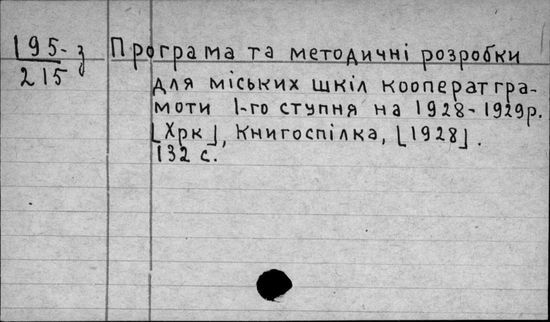 195-з
215
Програма та методичні розробки
для міських шкіл кооператгра-
моти 1-го ступня на 1928-1929р.
[Хрк], Книгоспілка, [1928].
132 с.